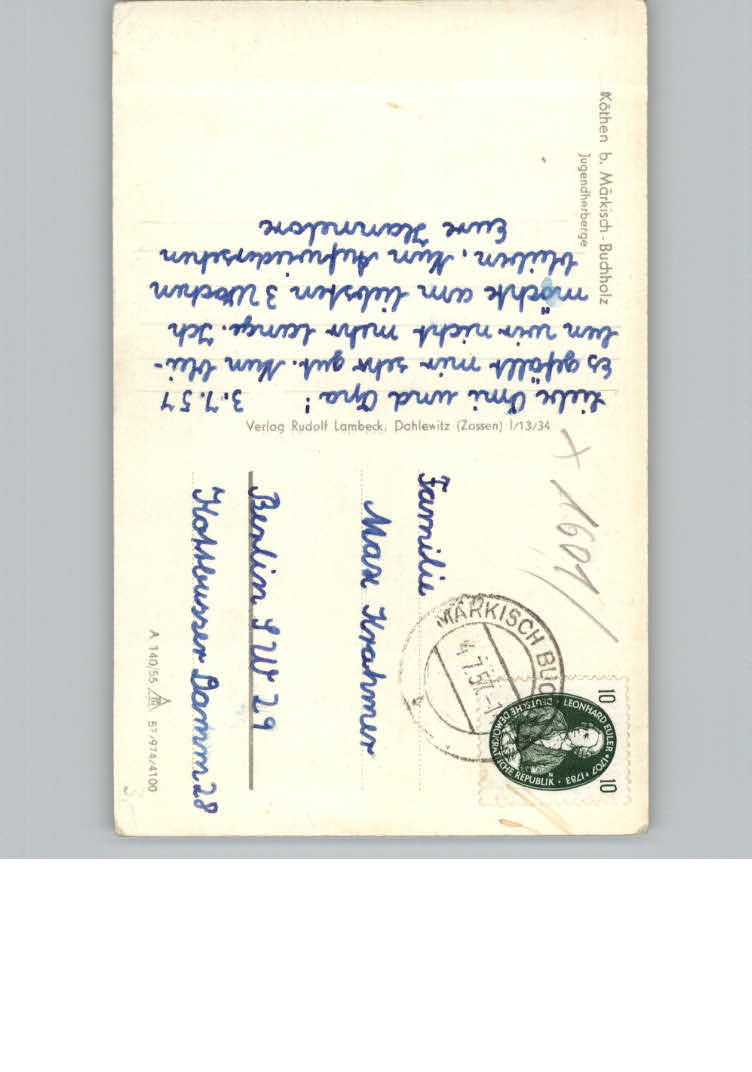 Köthen b. Märkisch-Buchholz
Jugendherberge
Liebe Omi und Opa! 3.7.57
Es gefällt mir sehr gut. Nun blei-
ben wir nicht mehr lange. Ich
möchte am liebsten 3 Wochen
bleiben. Nun Aufwiedersehen
Eure Hannelore
Verlag Rudolf Lambeck, Dahlewitz (Zossen) I/13/34
+ 1601/
MÄRKISCH BUC
4.7.57.-1
10 10
LEONHARD EULER · 1707 · 1783
DEUTSCHE DEMOKRATISCHE REPUBLIK
Familie
Max Krahmer
Berlin SW 29
Kottbusser Damm 28
A 140/55 57/974/4100